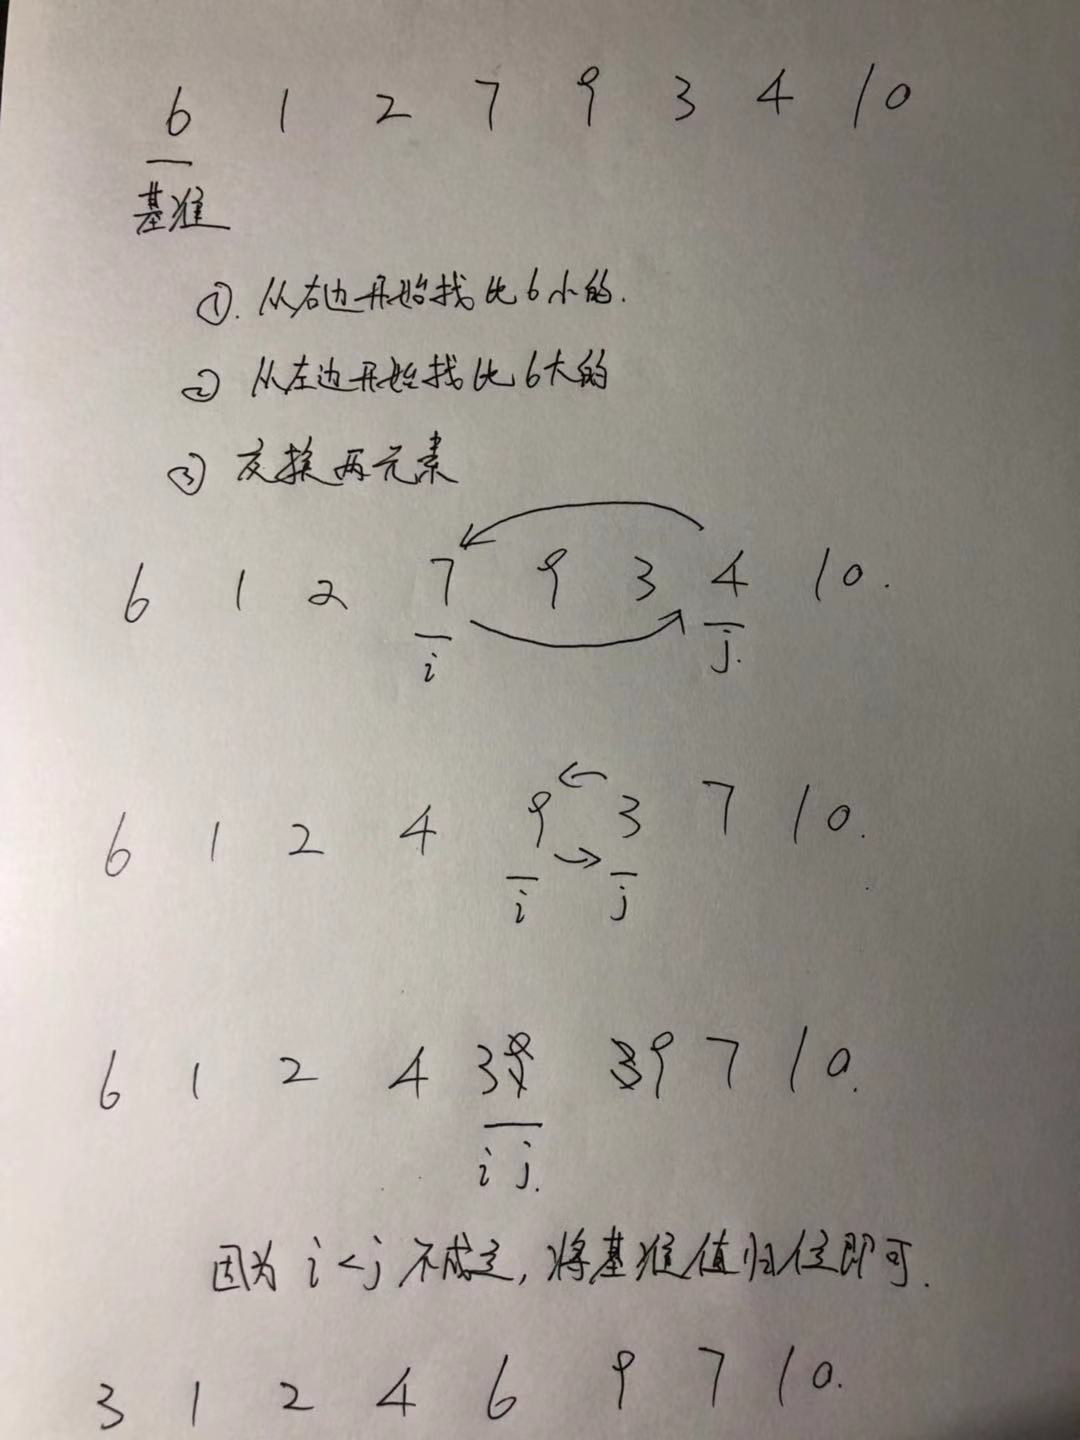 6 1 2 7 9 3 4 10
基准
①. 从右边开始找比6小的.
② 从左边开始找比6大的
③ 交换两元素
6 1 2 7 9 3 4 10.
i j.
6 1 2 4 9 3 7 10.
i j
6 1 2 4 3 9 3 9 7 10.
i j.
因为 i<j 不成立, 将基准值归位即可.
3 1 2 4 6 9 7 10.